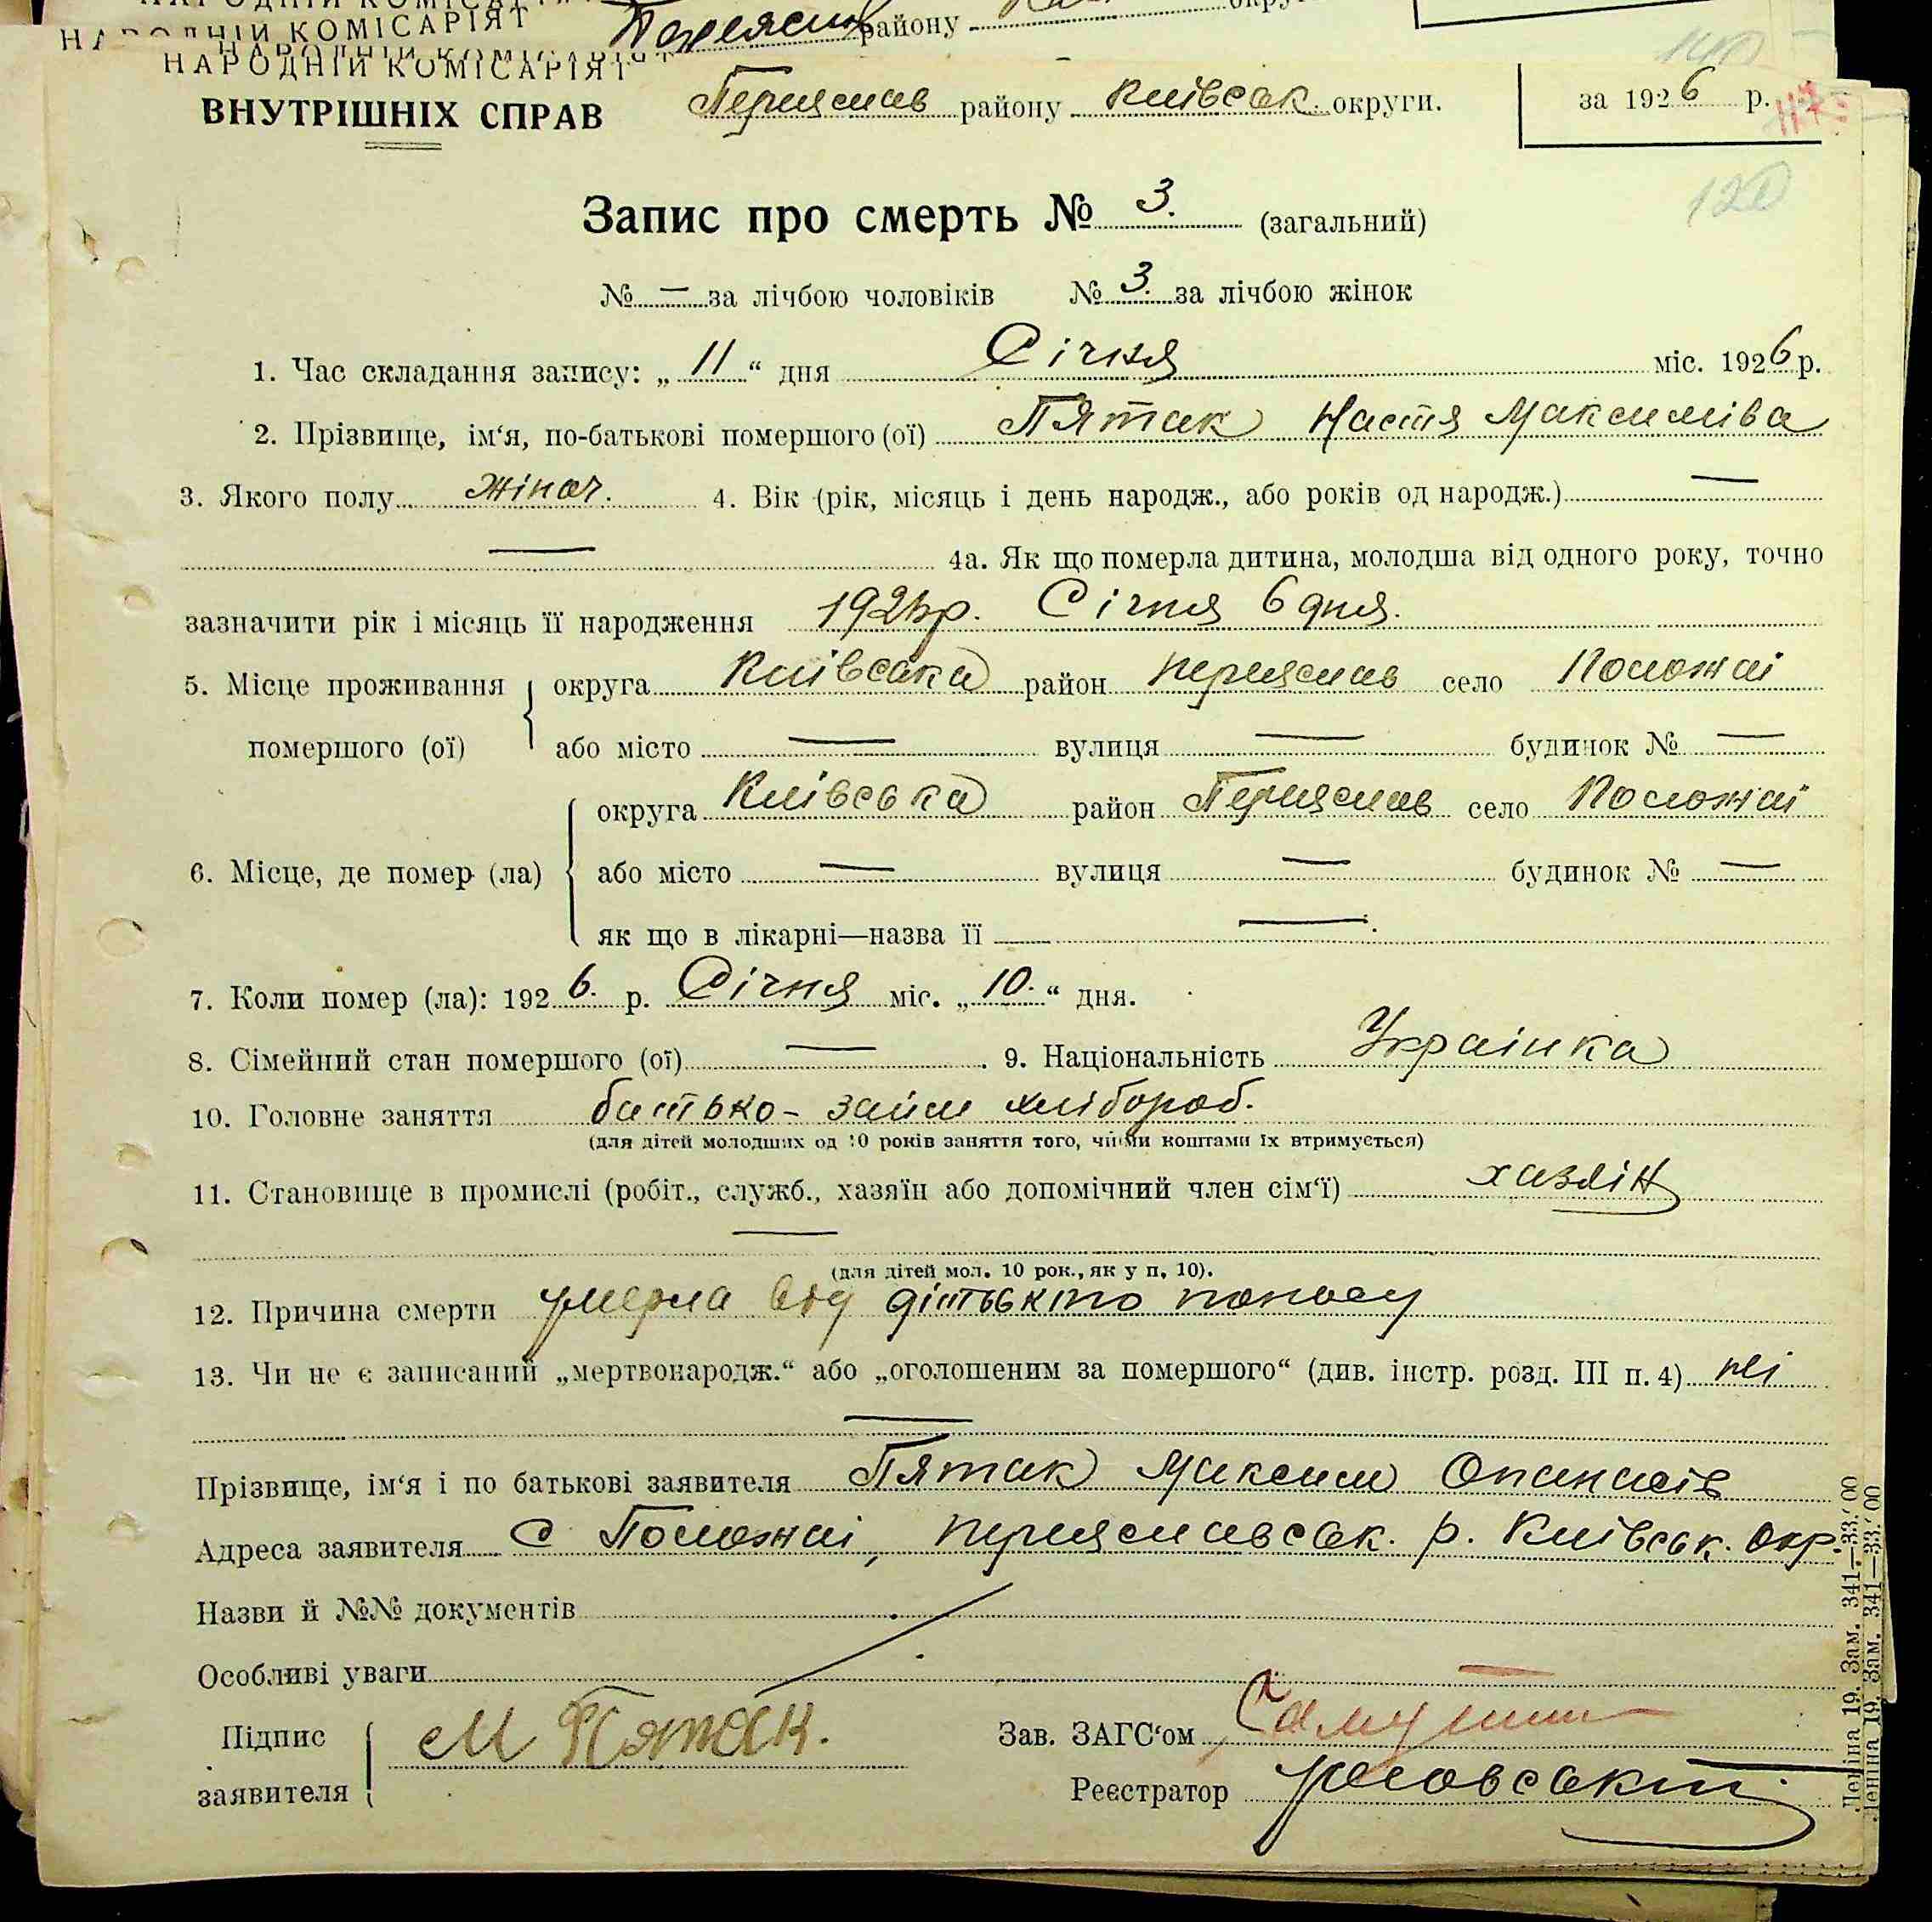 НАРОДНІЙ КОМІСАРІЯТ
району
НАРОДНІЙ КОМІСАРІЯТ
ВНУТРІШНІХ СПРАВ Переяслав району Київськ. округи. за 1926 р.
120
Запис про смерть № 3. (загальний)
№ — за лічбою чоловіків № 3. за лічбою жінок
1. Час складання запису: „11“ дня Січня міс. 1926 р.
2. Прізвище, ім‘я, по-батькові помершого (ої) Пятак Настя Максиміва
3. Якого полу жіноч. 4. Вік (рік, місяць і день народж., або років од народж.) —
— 4а. Як що померла дитина, молодша від одного року, точно
зазначити рік і місяць її народження Січня 6 дня.
5. Місце проживання округа Київська район Переяслав село Положаї
помершого (ої) або місто — вулиця — будинок № —
округа Київська район Переяслав село Положаї
6. Місце, де помер (ла) або місто — вулиця — будинок № —
як що в лікарні—назва її —
7. Коли помер (ла): 1926. р. Січня міс. „10.“ дня.
8. Сімейний стан помершого (ої) — . 9. Національність Українка
10. Головне заняття батько - займ хлібороб.
(для дітей молодших од 10 років заняття того, чиїми коштами їх втримується)
11. Становище в промислі (робіт., служб., хазяїн або допомічний член сім‘ї) хазяїн
—
(для дітей мол. 10 рок., як у п. 10).
12. Причина смерти умерла від поносу
13. Чи не є записаний „мертвонародж.“ або „оголошеним за помершого“ (див. інстр. розд. III п. 4) ні
—
Прізвище, ім‘я і по батькові заявителя Пятак Максим Опанасів
Адреса заявителя с Положаї, Переяславськ. р. Київськ. Окр.
Назви й №№ документів
Особливі уваги
Підпис заявителя М Пятак. Зав. ЗАГС‘ом
Реєстратор
Леніна 19. Зам. 341—33.
Леніна 19. Зам. 341—33.